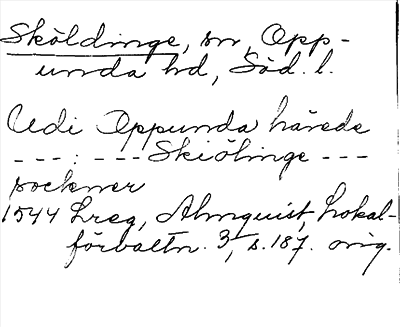 Sköldinge, sn, Opp-
unda hd, Söd. l.
Udi Oppunda härede
---:---Skiölinge---
sockner
1544 Lreg, Almquist, Lokal-
förvaltn. 3, s. 187. orig.